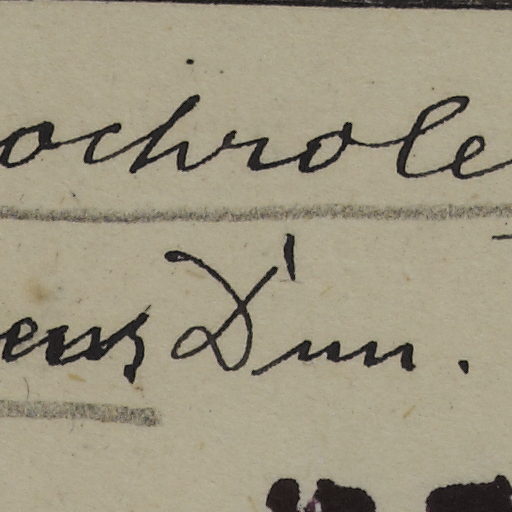 ochrole
ens D'un.